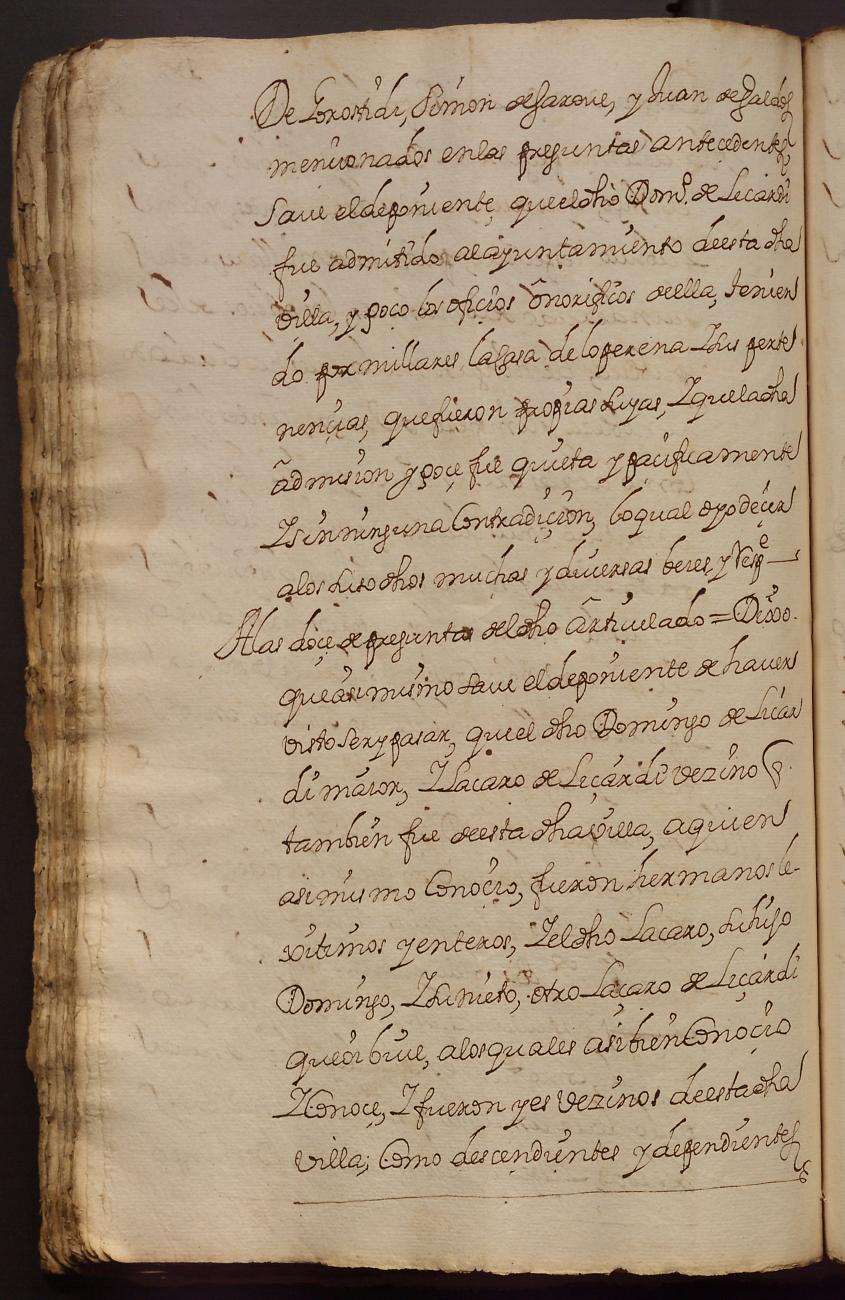 De Gorostidi, Simon de Sarove, y Juan de Galdos
mencionados en las preguntas antecedentes
Saue el deponiente, que el dho Domo. de Licardi
fue admitido al ayuntamiento de esta dha
villa, y goço los oficios onorificos de ella, tenien
do por millares la Casa de loperena Y sus perte
nencias, que fueron propias suyas, Y que la dha
admision y goçe fue quieta y pacificamente
Y sin ninguna Contradiçion, lo qual oyo deçir
a los suso dhos muchas y diuersas beces, y Respe
A las doçe de preguntas del dho articulado = Dixo.
que asi mismo saue el deponiente de hauer
visto ser y pasar, que el dho Domingo de Licar
di maior, Y Laçaro de Liçardi vezino q
tambien fue de esta dha villa, a quien
asi mismo Conoçio, fueron hermanos le-
xitimos y enteros, Y el dho Laçaro, su hijo
Domingo, Y su nieto, otro Laçaro de Liçardi
que oi biue, a los quales asi bien Conoçio
Y Conoçe, Y fueron y es vezinos de esta dha
villa; Como descendientes y dependientes